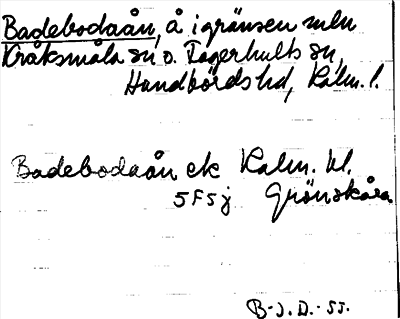 Badebodaån, å i gränsen mln
Kråksmåla sn o. Fagerhults sn,
Handbörds hd, Kalm. l.
Badebodaån ek Kalm. bl.
5F5j Grönskåra
B-J. D. -55.